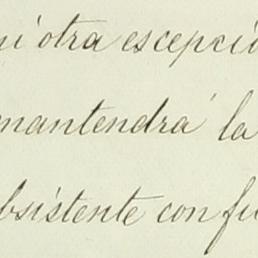 ni otra escepció
mantendrá la
bsistente con fu